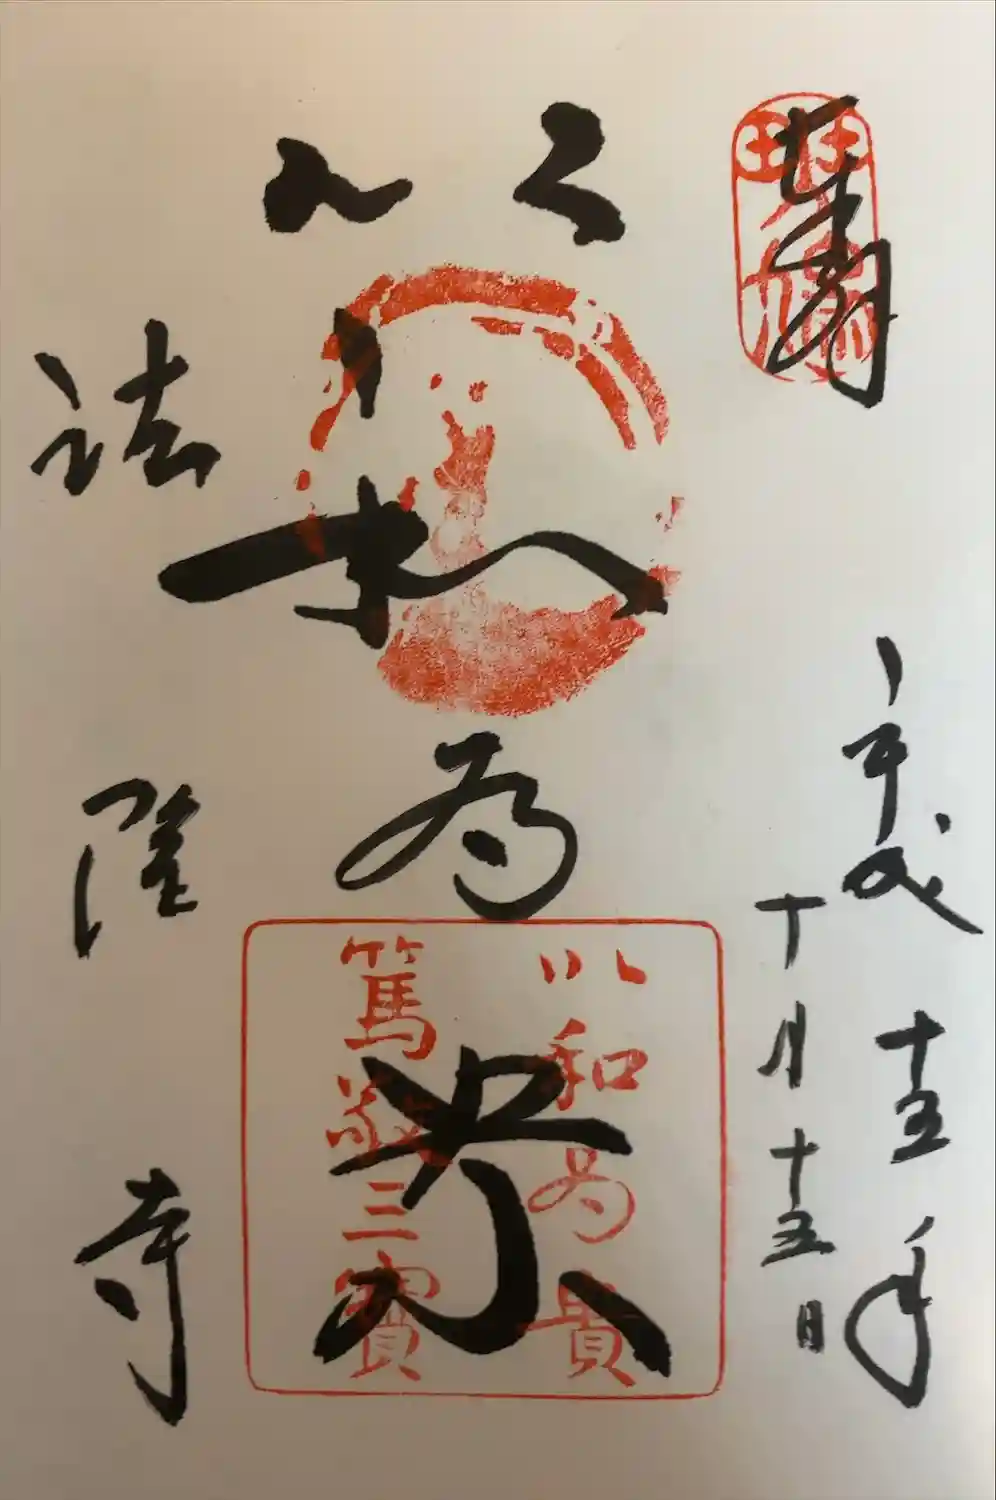 奉拝
平成十五年
十月十五日
以和為貴
以和為貴
篤敬三寶
法隆寺